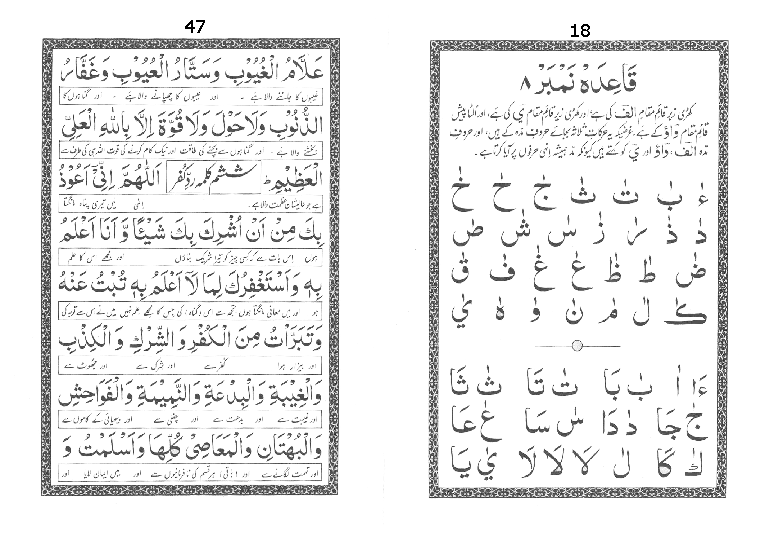 18
قَاعِدَہ نَمْبَر ۸
کھڑی زبر قائم مقام الف کی ہے، اور کھڑی زیر قائم مقام ی کی ہے، اور الٹا پیش
قائم مقام واؤ کے ہے، غرضیکہ یہ حرکات ثلاثہ بجائے حروف مدہ کے ہیں، اور حروف
مدہ الف، واؤ اور ی کو کہتے ہیں کیونکہ مد ہمیشہ انہی حرفوں پر آیا کرتا ہے۔
ءٰ بٰ تٰ ثٰ جٰ حٰ خٰ
دٰ ذٰ رٰ زٰ سٰ شٰ صٰ
ضٰ طٰ ظٰ عٰ غٰ فٰ قٰ
كٰ لٰ مٰ نٰ وٰ هٰ يٰ
ءَا اٰ بٰ بَا تٰ تَا ثٰ ثَا
جٰ جَا دٰ دَا سٰ سَا عٰ عَا
كٰ كَا لٰ لَا لَا لَا يٰ يَا
47
عَلَّامُ الْغُيُوْبِ وَسَتَّارُ الْعُيُوْبِ وَغَفَّارُ
غیبوں کا جاننے والا ہے ۔ اور عیبوں کا چھپانے والا ہے ۔ اور گناہوں کا
الذُّنُوْبِ وَلَاحَوْلَ وَلَاقُوَّةَ اِلَّا بِاللّٰهِ الْعَلِيِّ
بخشنے والا ہے ۔ اور گناہوں سے بچنے کی طاقت اور نیک کام کرنے کی قوت اللہ ہی کی طرف سے
الْعَظِيْمِ ط ششم کلمہ ردِّ کفر اَللّٰهُمَّ اِنِّيْٓ اَعُوْذُ
ہے جو عالیشان عظمت والا ہے۔ الٰہی میں تیری پناہ مانگتا
بِكَ مِنْ اَنْ اُشْرِكَ بِكَ شَيْئًا وَّاَنَا اَعْلَمُ
ہوں اس بات سے کہ کسی چیز کو تیرا شریک بناؤں اور مجھے اس کا علم
بِهٖ وَاَسْتَغْفِرُكَ لِمَا لَآ اَعْلَمُ بِهٖ تُبْتُ عَنْهُ
ہو اور میں معافی مانگتا ہوں تجھ سے اس گناہ کی جس کا مجھے علم نہیں میں نے اس سے توبہ کی
وَتَبَرَّاْتُ مِنَ الْكُفْرِ وَالشِّرْكِ وَالْكِذْبِ
اور بیزار ہوا کفر سے اور شرک سے اور جھوٹ سے
وَالْغِيْبَةِ وَالْبِدْعَةِ وَالنَّمِيْمَةِ وَالْفَوَاحِشِ
اور غیبت سے اور بدعت سے اور چغلی سے اور بےحیائی کے کاموں سے
وَالْبُهْتَانِ وَالْمَعَاصِيْ كُلِّهَا وَاَسْلَمْتُ وَ
اور تہمت لگانے سے اور ہر قسم کی نافرمانیوں سے اور میں ایمان لایا اور